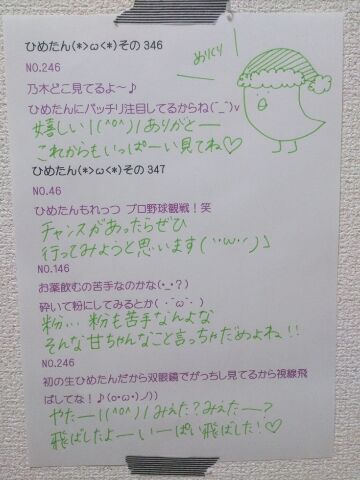 ひめたん(*>ω<*)その346
NO.246
乃木どこ見てるよ～♪
ひめたんにバッチリ注目してるからね(¯_¯)v
嬉しい!(^o^)! ありがとー
これからもいっぱーい見てね♡
めりくり
ひめたん(*>ω<*)その347
NO.46
ひめたんもれっつ プロ野球観戦！笑
チャンスがあったらぜひ
行ってみようと思います(˙ω˙)
NO.146
お薬飲むの苦手なのかな(・_・？)
砕いて粉にしてみるとか( ・´ω`・ )
粉… 粉も苦手なんよな
そんな甘ちゃんなこと言っちゃだめよね!!
NO.246
初の生ひめたんだから双眼鏡でがっちし見てるから視線飛
ばしてな！♪(o・ω・)ノ))
やたー!(^o^)! みえた？みえたー？
飛ばしたよーいーぱい飛ばした！♡